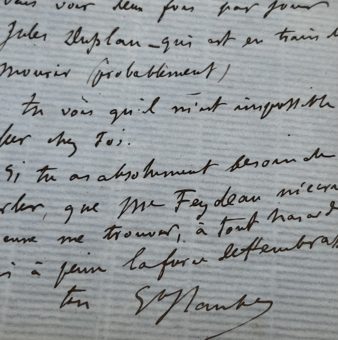 vais voir deux fois par jour
Jules Duplan – qui est en train de
mourir (probablement)
tu vois qu'il m'est impossible
chez Toi.
Si tu as absolument besoin de
que Me Feydeau m'écri
me trouver, à tout hasard
à peine la force de t'embrasser
ton Gve Flaubert